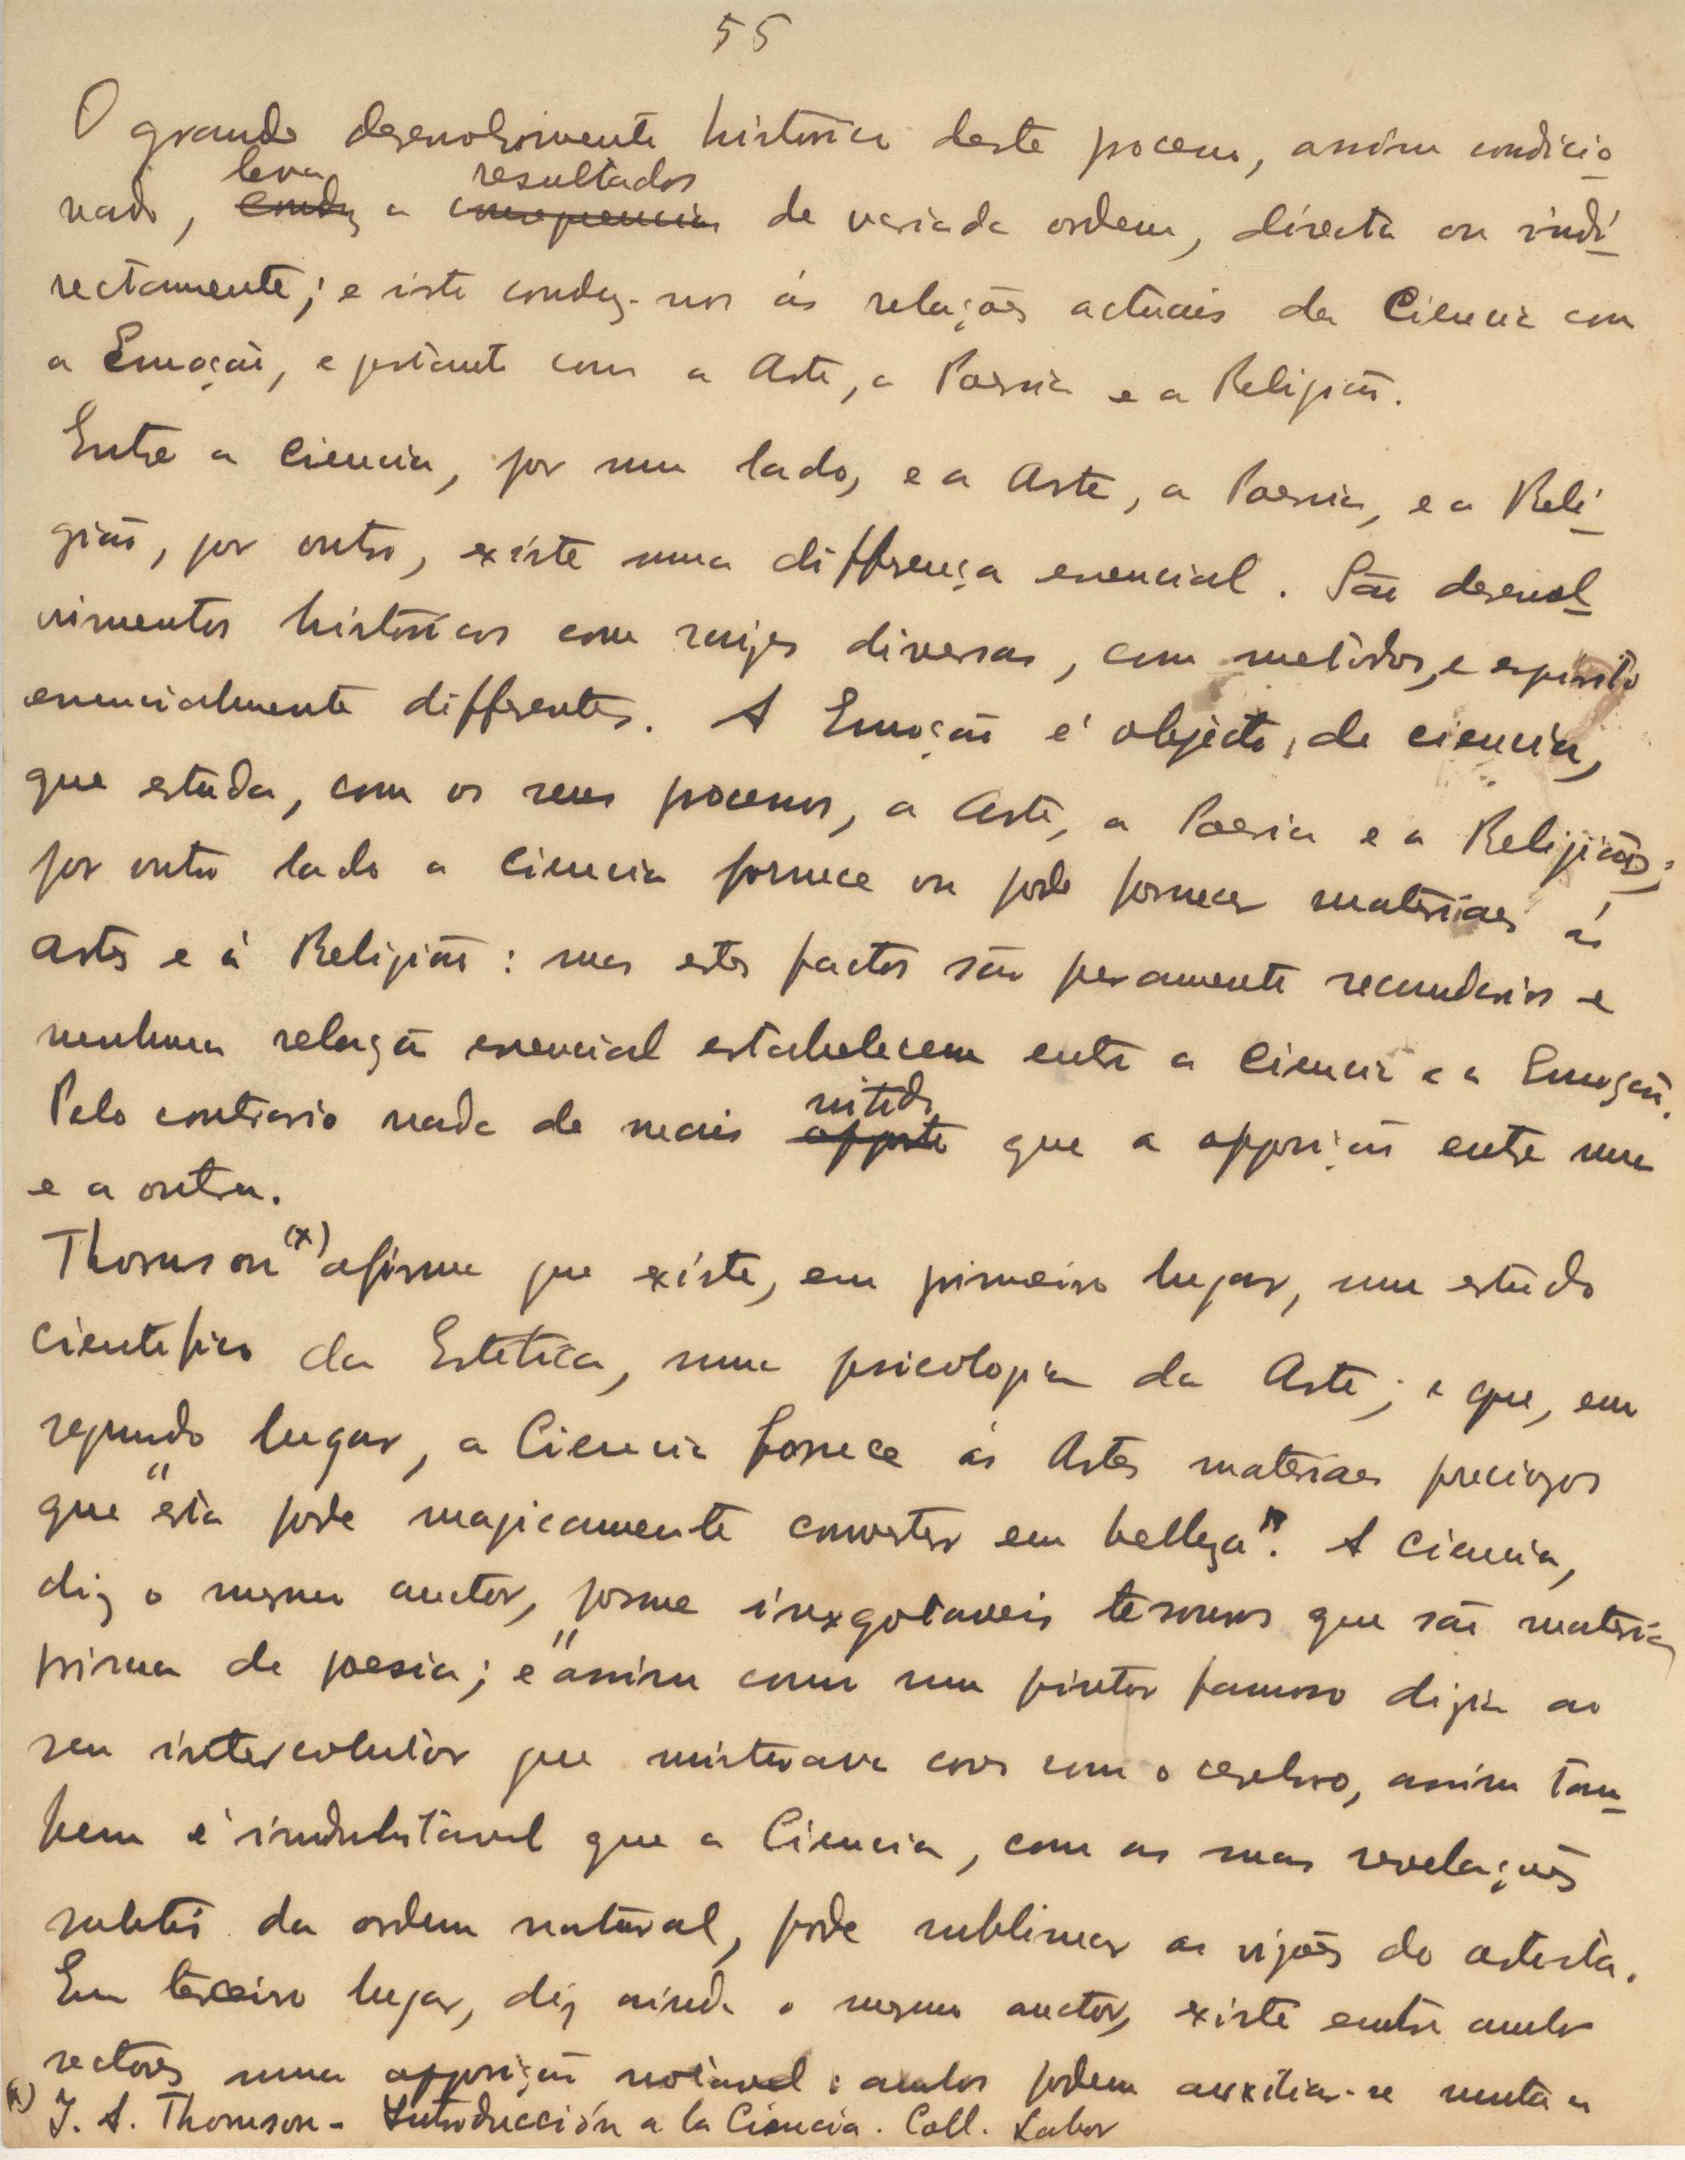 55
O grande desenvolvimento historico deste processo, assim condicio
leva resultados
nado, conduz a consequencias de variada ordem, directa ou indi
rectamente; e isto conduz-nos ás relações actuais da Ciencia com
a Emoção, e portanto com a Arte, a Poesia e a Religião.
Entre a Ciencia, por um lado, e a Arte, a Poesia, e a Reli
gião, por outro, existe uma differença essencial. São desenvol
vimentos historicos com raizes diversas, com metodos, e espirito
essencialmente differentes. A Emoção é objecto, de ciencia,
que estuda, com os seus processos, a Arte, a Poesia e a Religião;
por outro lado a Ciencia fornece ou pode fornecer materiaes ás
Artes e á Religião: mas estes factos são puramente secundarios e
nenhuma relação essencial estabelecem entre a Ciencia e a Emoção.
nitido
Pelo contrario nada de mais opposto que a opposição entre uma
e a outra.
Thomson (x) afirma que existe, em primeiro lugar, um estudo
cientifico da Estetica, uma psicologia da Arte; e que, em
segundo lugar, a Ciencia fornece ás Artes materiaes preciozos
que "esta pode magicamente converter em belleza". A Ciencia,
diz o mesmo auctor, forma inexgotaveis tesouros que são materia
prima de poesia; e "assim como um pintor famoso dizia ao
seu interlocutor que misturava cores com o cerebro, assim tam
bem é indubitavel que a Ciencia, com as suas revelações
subtis da ordem natural, pode sublimar as vizões do artista.
Em terceiro lugar, diz ainda o mesmo auctor, existe entre ambos
sectores uma opposição notavel: ambos podem auxiliar-se muta a
(x) J. A. Thomson - Introducción a la Ciencia. Coll. Labor